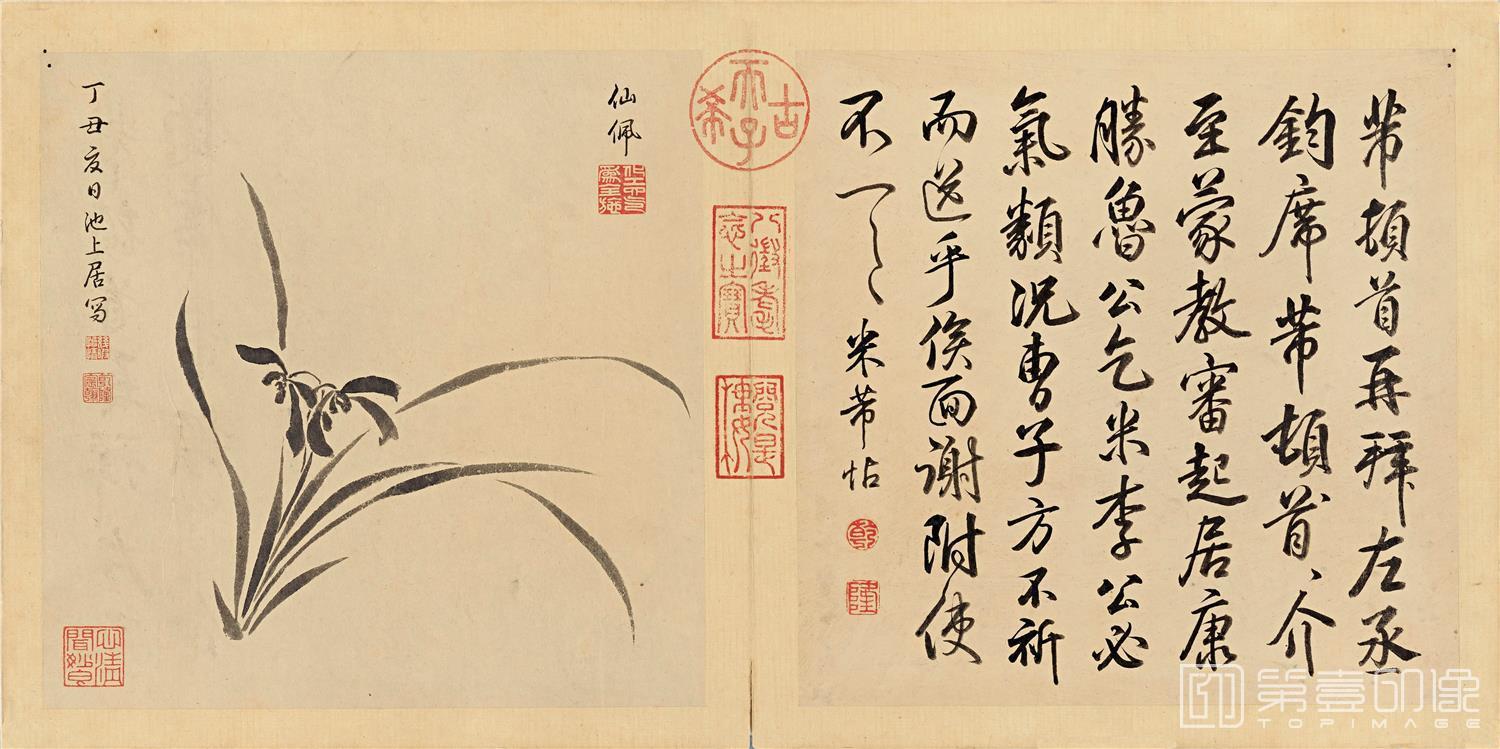 芾頓首再拜左丞
鈞席芾頓首、介
至蒙教審起居康
勝魯公乞米李公必
氣類況曹子方不祈
而送乎俟面謝附使
不一一、米芾帖
乾
隆
古
天子
希
八徵耄念之寶
仙佩
丁丑夏日池上居写
第壹印像
TOPIMAGE